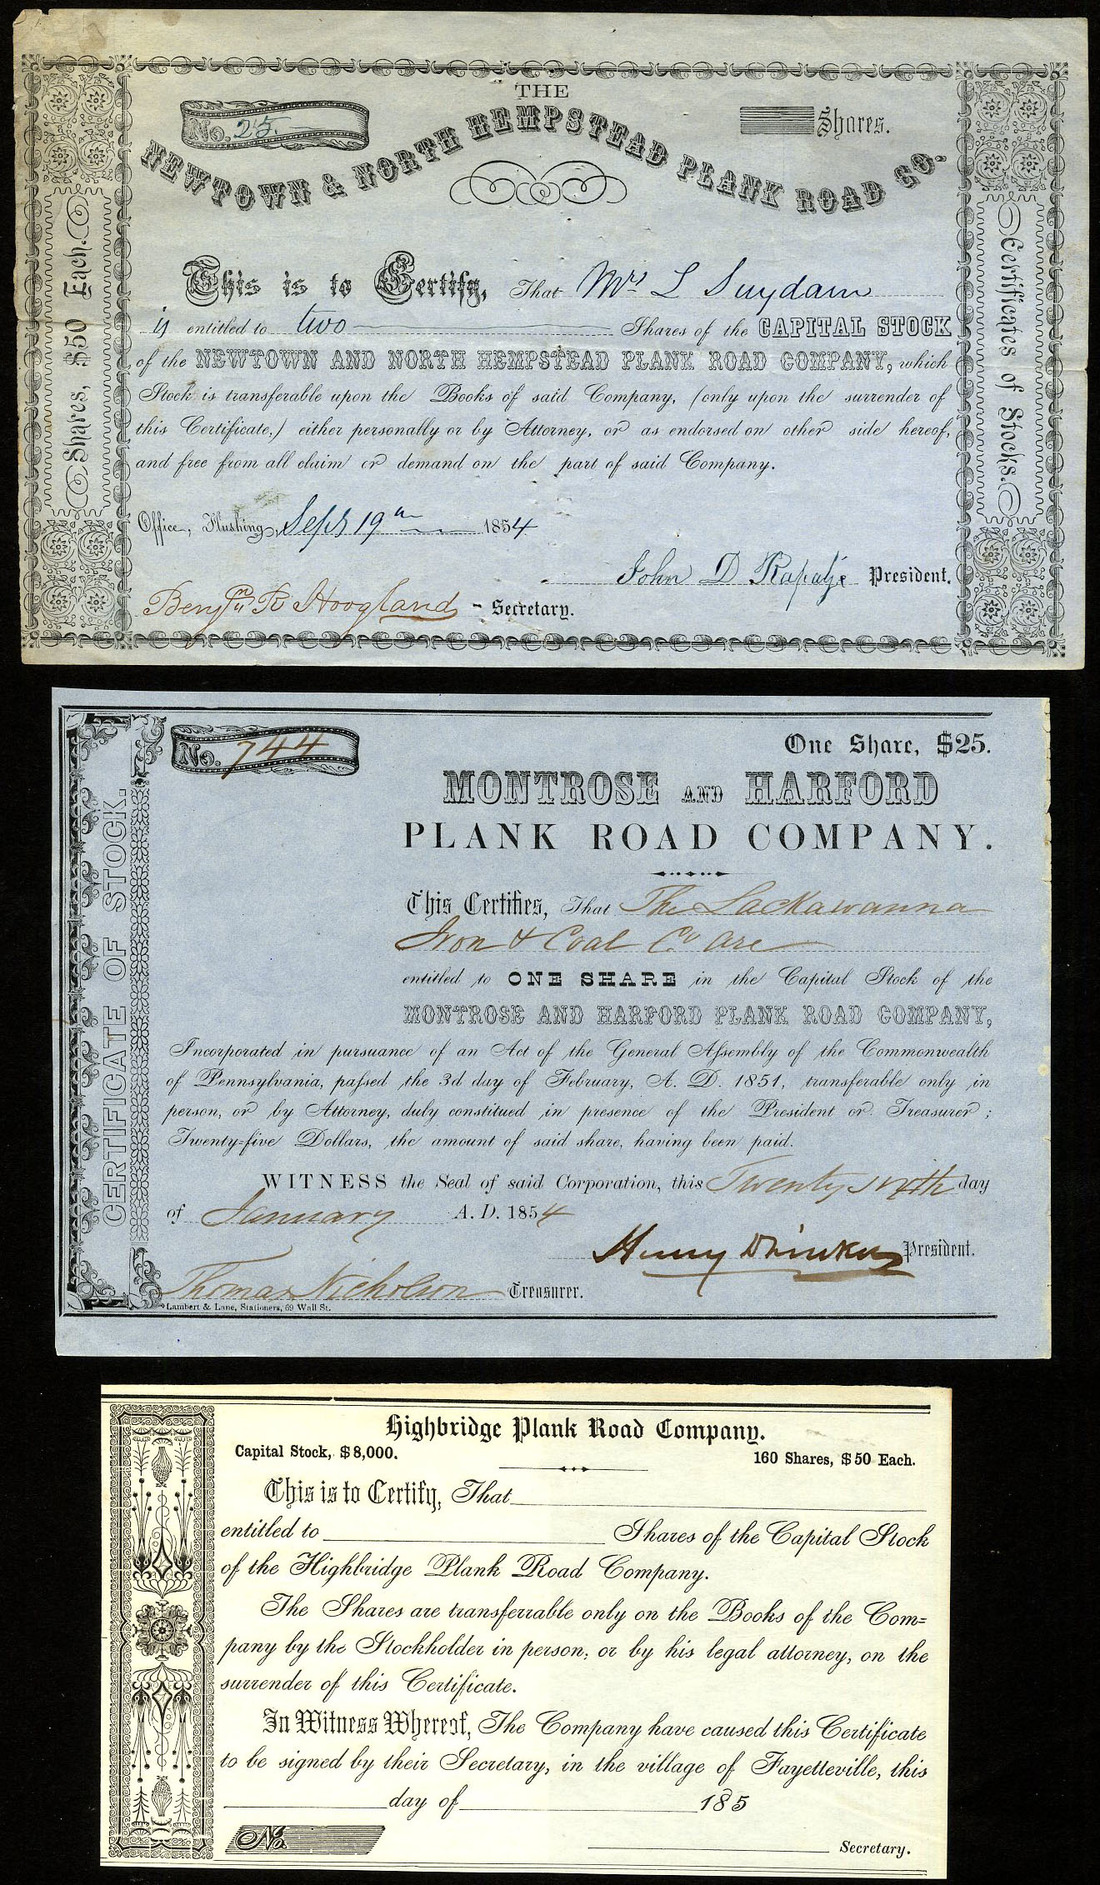 THE
No. 25. Shares.
NEWTOWN & NORTH HEMPSTEAD PLANK ROAD CO.
Shares, $50 Each.
Certificates of Stocks.
This is to Certify, That Mrs L Suydam
is entitled to two Shares of the CAPITAL STOCK
of the NEWTOWN AND NORTH HEMPSTEAD PLANK ROAD COMPANY, which
Stock is transferable upon the Books of said Company, (only upon the surrender of
this Certificate,) either personally or by Attorney, or as endorsed on other side hereof,
and free from all claim or demand on the part of said Company.
Office, Flushing, Sept 19th 1854
John D Rapalje President.
Benjn R Hoogland - Secretary.
No. 744
One Share, $25.
CERTIFICATE OF STOCK.
MONTROSE AND HARFORD
PLANK ROAD COMPANY.
This Certifies, That The Lackawanna
Iron & Coal Co are
entitled to ONE SHARE in the Capital Stock of the
MONTROSE AND HARFORD PLANK ROAD COMPANY,
Incorporated in pursuance of an Act of the General Assembly of the Commonwealth
of Pennsylvania, passed the 3d day of February, A. D. 1851, transferable only in
person, or by Attorney, duly constituted in presence of the President or Treasurer;
Twenty-five Dollars, the amount of said share, having been paid.
WITNESS the Seal of said Corporation, this Twenty sixth day
of January A. D. 1854
Henry Drinker President.
Thomas Nicholson Treasurer.
Lambert & Lane, Stationers, 69 Wall St.
Highbridge Plank Road Company.
Capital Stock, $8,000. 160 Shares, $50 Each.
This is to Certify, That
entitled to Shares of the Capital Stock
of the Highbridge Plank Road Company.
The Shares are transferrable only on the Books of the Com=
pany by the Stockholder in person, or by his legal attorney, on the
surrender of this Certificate.
In Witness Whereof, The Company have caused this Certificate
to be signed by their Secretary, in the village of Fayetteville, this
day of 185
No.
Secretary.